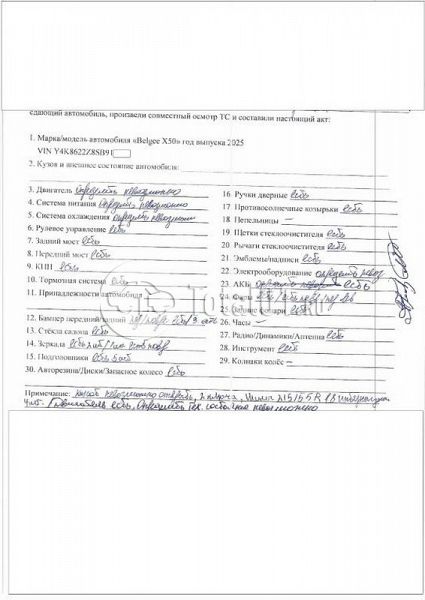 сдающий автомобиль, произвели совместный осмотр ТС и составили настоящий акт:
1. Марка/модель автомобиля «Belgee X50» год выпуска 2025
VIN Y4K8622Z8SB91
2. Кузов и внешнее состояние автомобиля:
3. Двигатель определить невозможно
4. Система питания определить невозможно
5. Система охлаждения определить невозможно
6. Рулевое управление есть
7. Задний мост есть
8. Передний мост есть
9. КПП есть
10. Тормозная система есть
11. Принадлежности автомобиля
12. Бампер передний/задний
13. Стёкла салона есть
14. Зеркала есть
15. Подголовники есть 5шт
30. Авторезина/Диски/Запасное колесо есть
16 Ручки дверные есть
17 Противосолнечные козырьки есть
18 Пепельницы —
19 Щетки стеклоочистителя есть
20 Рычаги стеклоочистителя есть
21. Эмблемы/надписи есть
22. Электрооборудование определить невоз.
23. АКБ есть
24. Фары
25. Задние фонари есть
26. Часы
27. Радио/Динамики/Антенна есть
28. Инструмент есть
29. Колпаки колёс —
Примечание: невозможно открыть, 2 ключа, шины 215/55 R 18
Двигатель есть, определить тех. состояние невозможно